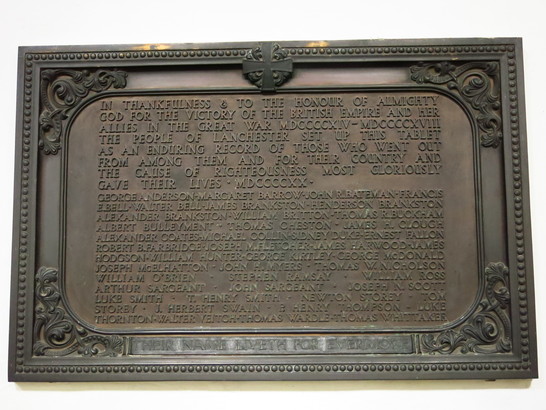 IN THANKFULLNESS & TO THE HONOUR OF ALMIGHTY
GOD FOR THE VICTORY OF THE BRITISH EMPIRE AND HER
ALLIES IN THE GREAT WAR MDCCCCXIV-MDCCCCXVIII
THE PEOPLE OF LANCHESTER SET UP THIS TABLET
AS AN ENDURING RECORD OF THOSE WHO WENT OUT
FROM AMONG THEM AND FOR THEIR COUNTRY AND
THE CAUSE OF RIGHTEOUSNESS MOST GLORIOUSLY
GAVE THEIR LIVES · MDCCCCXX ·
GEORGE ANDERSON · MARGARET BARROW · JOHN R. BATEMAN · FRANCIS
E. BELL · WALTER BELL · JAMES BRANKSTON · HENDERSON BRANKSTON
ALEXANDER BRANKSTON · WILLIAM BRITTON · THOMAS R. BUCKHAM
ALBERT BULLEYMENT · THOMAS CHESTON · JAMES CLOUGH
ALEXANDER COATES · MICHAEL COLLINS · ERNEST FAILOR
ROBERT B. FAIRBRIDGE · JOSEPH M. FLETCHER · JAMES HARWOOD · JAMES
HODGSON · WILLIAM HUNTER · GEORGE KIRTLEY · GEORGE McDONALD
JOSEPH McELHATTON · JOHN T. MYERS · THOMAS W. NICHOLSON
WILLIAM O'BRIEN · STEPHEN RAMSAY · WILLIAM ROSS
ARTHUR SARGEANT · JOHN SARGEANT · JOSEPH N. SCOTT
LUKE SMITH · T. HENRY SMITH · NEWTON STOREY · TOM
STOREY · J. HERBERT SWAIN · P. HENRY THOMPSON · LUKE
THORNTON · WALTER VEITCH · THOMAS WARDLE · THOMAS WHITTAKER
THEIR NAME LIVETH FOR EVERMORE